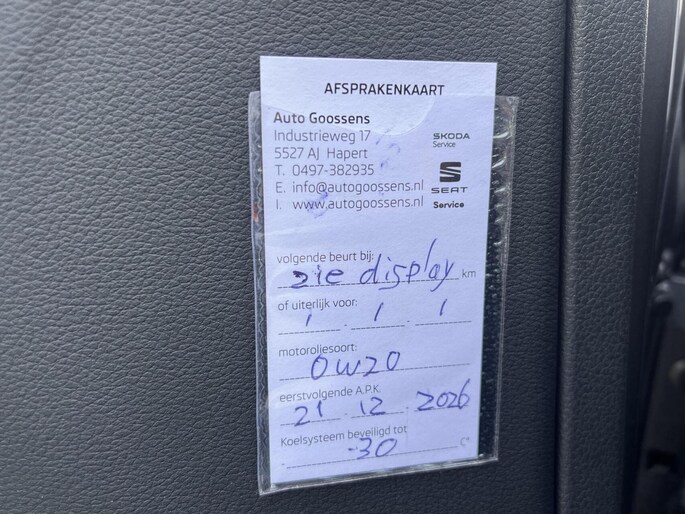 AFSPRAKENKAART
Auto Goossens
Industrieweg 17
5527 AJ Hapert
T. 0497-382935
E. info@autogoossens.nl
I. www.autogoossens.nl
SKODA
Service
SEAT
Service
volgende beurt bij:
zie display km
of uiterlijk voor:
/ / /
motoroliesoort:
0W20
eerstvolgende A.P.K.
21 12 2026
Koelsysteem beveiligd tot
-30 °C